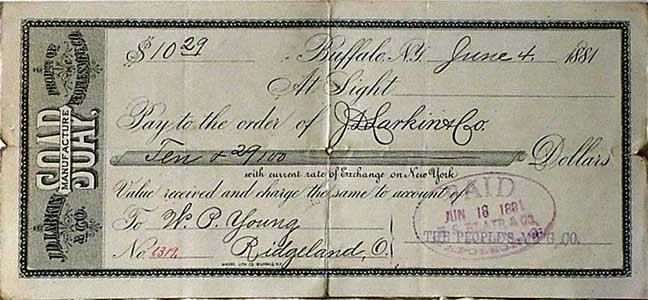 PROP'S OF
PEOPLES M'F'G CO.
SOAP
MANUFACTURE
SOAP.
J.D. LARKIN
& CO.
$10 29
Buffalo, N.Y. June 4. 1881
At Sight
Pay to the order of J.D. Larkin & Co.
Ten & 29/100 Dollars
with current rate of Exchange on New York
Value received and charge the same to account of
To W. P. Young
No. Ridgeland, O.
PAID
JUN 18 1881
THE PEOPLE'S M'F'G CO.